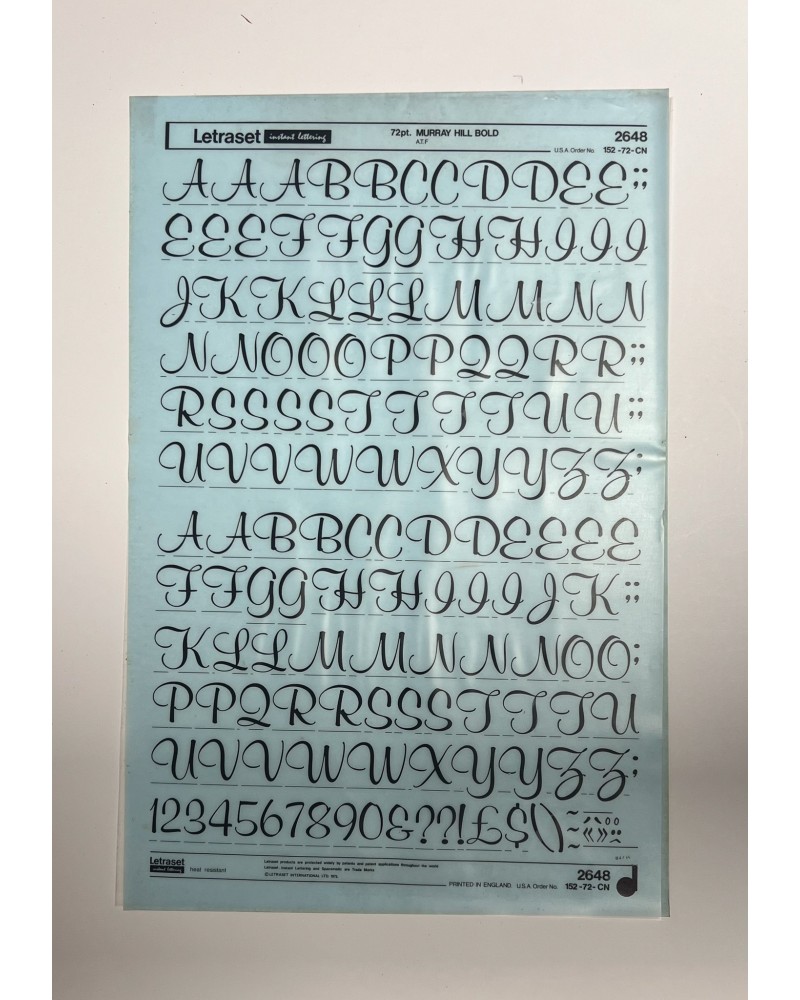 Letraset instant lettering 72pt. MURRAY HILL BOLD 2648
A.T.F U.S.A Order No. 152-72-CN
AAABBCCDDEE;;
EEEFFGGHHIII
JKKLLLMMNNN
NNOOOPPQQRR;;
RSSSSTTTTUU;;
UVVWWXYYZZ;
AABBCCDDEEEE
FFGGHHIIIJK;;
KLLMMNNNOO;
PPQRRSSSTTTU
UVVWWXYYZZ;
1234567890&??!£$()
Letraset
instant lettering heat resistant
Letraset products are protected solely by patents and patent applications throughout the world
Letraset, Instant Lettering and Spacematic are Trade Marks
© LETRASET INTERNATIONAL LTD
2648
PRINTED IN ENGLAND. U.S.A Order No. 152-72-CN